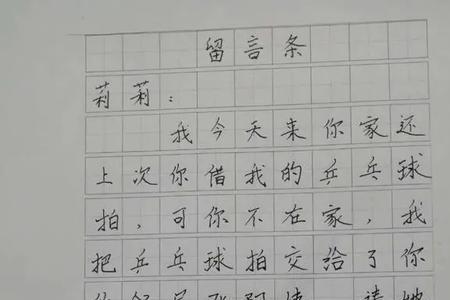 留言条
莉莉：
我今天来你家还
上次你借我的乒乓球
拍，可你不在家，我
把乒乓球拍交给了你